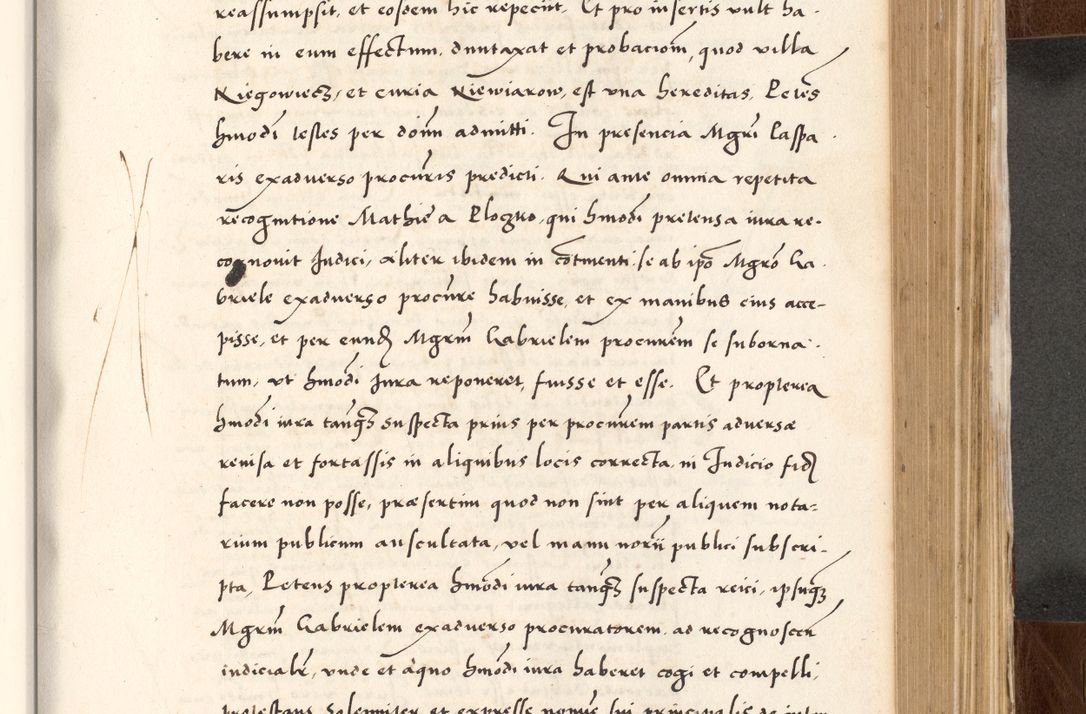 reassumpsit, et eosdem hic repeciit. Et pro insertis vult ha-
bere in eum effectum, duntaxat et probaciom̄, quod villa
Niegowiecz, et curia Niewiarow, est vna hereditas. Petes
hm̄odi testes per domn̄ admitti. In presencia Mgrī Caspa-
ris exaduerso procur̄is predicti. Qui ante omnia repetita
recognitione Mathie a Plogko, qui hm̄odi pretensa iura re-
cognouit Iudici, aliter ibidem in cōtinenti, se ab ip̄o Mgrō Ga-
briele exaduerso procur̄e habuisse, et ex manibus eius acce-
pisse, et per eund Mgrm̄ Gabrielem procur̄em se suborna-
tum, vt hm̄odi iura reponeret, fuisse et esse. Et propterea
hm̄odi iura tanq̄z suspecta prius per procur̄em partis aduersæ
reuisa et fortassis in aliquibus locis correcta, in Iudicio fid
facere non posse, præsertim quod non sint per aliquem nota-
rium publicum auscultata, vel manu norīi publici subscri-
pta, Petens propterea hm̄odi iura tanq̄z suspecta reici, ipsuqz
Mgrm̄ Gabrielem exaduerso procuratorem, ad recognoscen̄
iudicialr̄, vnde et a quo hm̄odi iura haberet cogi et compelli,
protestans solenniter et expresse nomīe sui principalis de